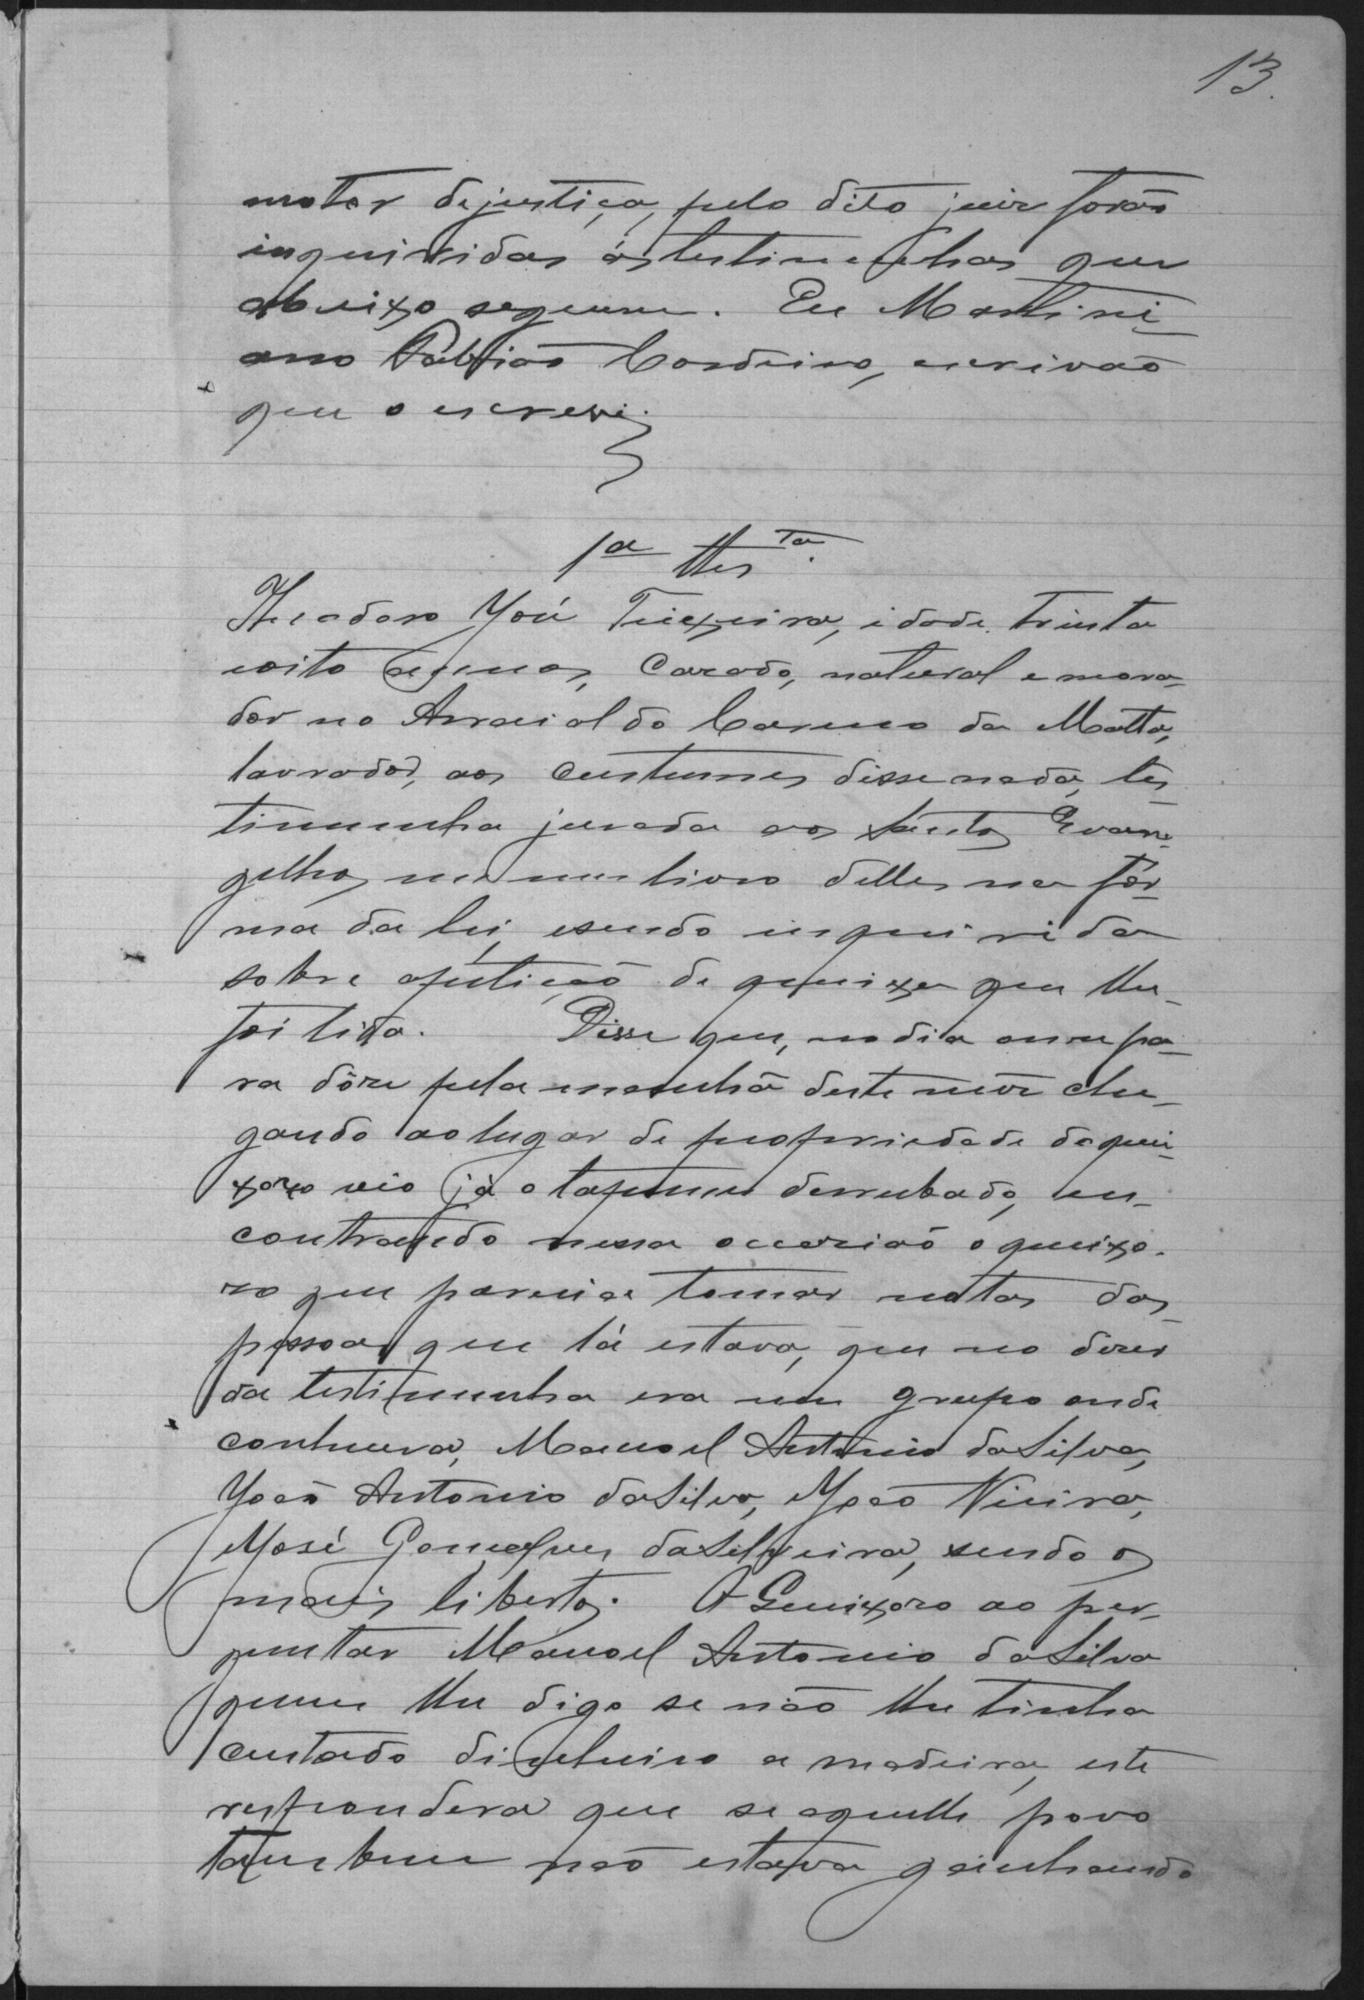 13.
motor dejustiça, pelo dito juiz forão
inquiridas ás testimunhas que
abaixo seguem. Eu Martini_
ano Fabião Cordeiro, escrivão
que o escrevi.
1ª Tes.ta
Theodoro José Teixeira, idade trinta
eoito annos, Cazado, natural e mora_
dor no Arraial do Carmo da Matta,
lavrador, aos custumes disse nada, tes_
timunha jurada aos Santos Evan_
gelhos, em um livro delles na fór_
ma da lei, esendo inquirida
sobre apetição de queixa que lhe_
foi lida. Disse que, no dia onze pa_
ra dôze pela manhã deste mêz che_
gando ao lugar de propriedade do quei_
xozo vio já o tapume derrubado, en_
contrando nessa occazião o queixo_
zo que parecia tomar notas das
pessoas que lá estava, que no dizer
da testimunha era um grupo onde
conhecera, Manoel Antonio da Silva,
João Antonio da Silva, João Vieira,
José Gonçalves da Silveira, sendo os
mais libertos. O Queixozo ao per_
guntar Manoel Antonio da Silva
quem lhe digo se não lhe tinha
custado dinheiro a madeira, este
respondera que se aquelle povo
tambem não estava gainhando